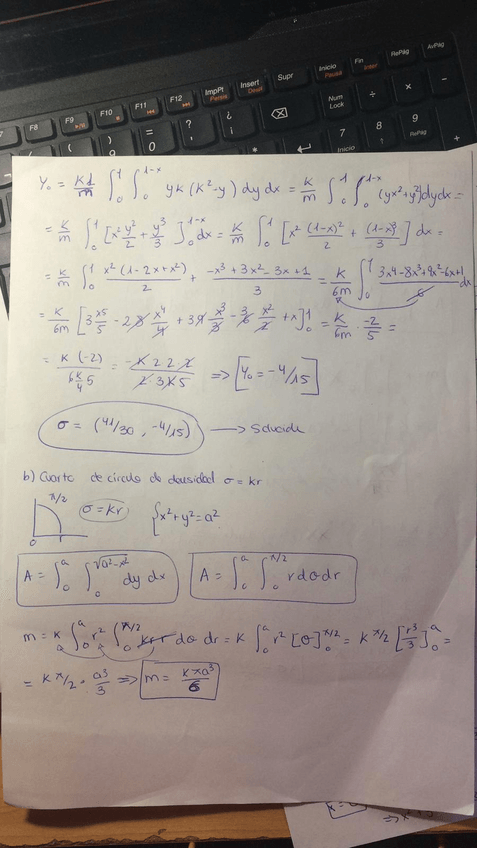 F7 F8 F9 F10 F11 F12 ImpPt Petsis Insert Supr Inicio Pausa Fin Inter RePág AvPág
Num Lock ÷ × -
7 Inicio 8 9 RePág
Y₀ = kd/m ∫₀¹ ∫₀^(1-x) yk(k²-y) dy dx = k/m ∫₀¹ ∫₀^(1-x) (yx²+y²) dy dx =
= k/m ∫₀¹ [x² y²/2 + y³/3]₀^(1-x) dx = k/m ∫₀¹ [x² (1-x)²/2 + (1-x)³/3] dx =
= k/m ∫₀¹ x²(1-2x+x²)/2 + -x³+3x²-3x+1/3 = k/6m ∫₀¹ 3x⁴-8x³+9x²-6x+1/6 dx
= k/6m [3 x⁵/5 - 2 8 x⁴/4 + 3 9 x³/3 - 3 6 x²/2 + x]₀¹ = k/6m · -2/5 =
= k(-2)/6 k/4 5 = -k 2 2 2/2 3 k 5 ⇒ [Y₀ = -4/15]
σ = (41/30, -4/15) ⟶
b) Cuarto de circulo de densidad σ = kr
π/2
σ = kr {x²+y²=a²
0
A = ∫₀^a ∫₀^√(a²-x²) dy dx A = ∫₀^a ∫₀^(π/2) r dθ dr
m = k ∫₀^a r² ∫₀^(π/2) kr r dθ dr = k ∫₀^a r² [θ]₀^(π/2) = k π/2 [r³/3]₀^a =
= k π/2 · a³/3 ⇒ m = kπa³/6